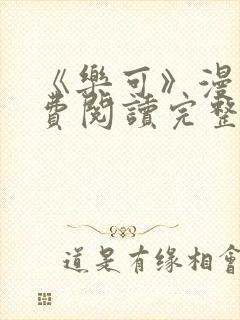 《樂可》漫
費閱讀完整
道是有缘相會